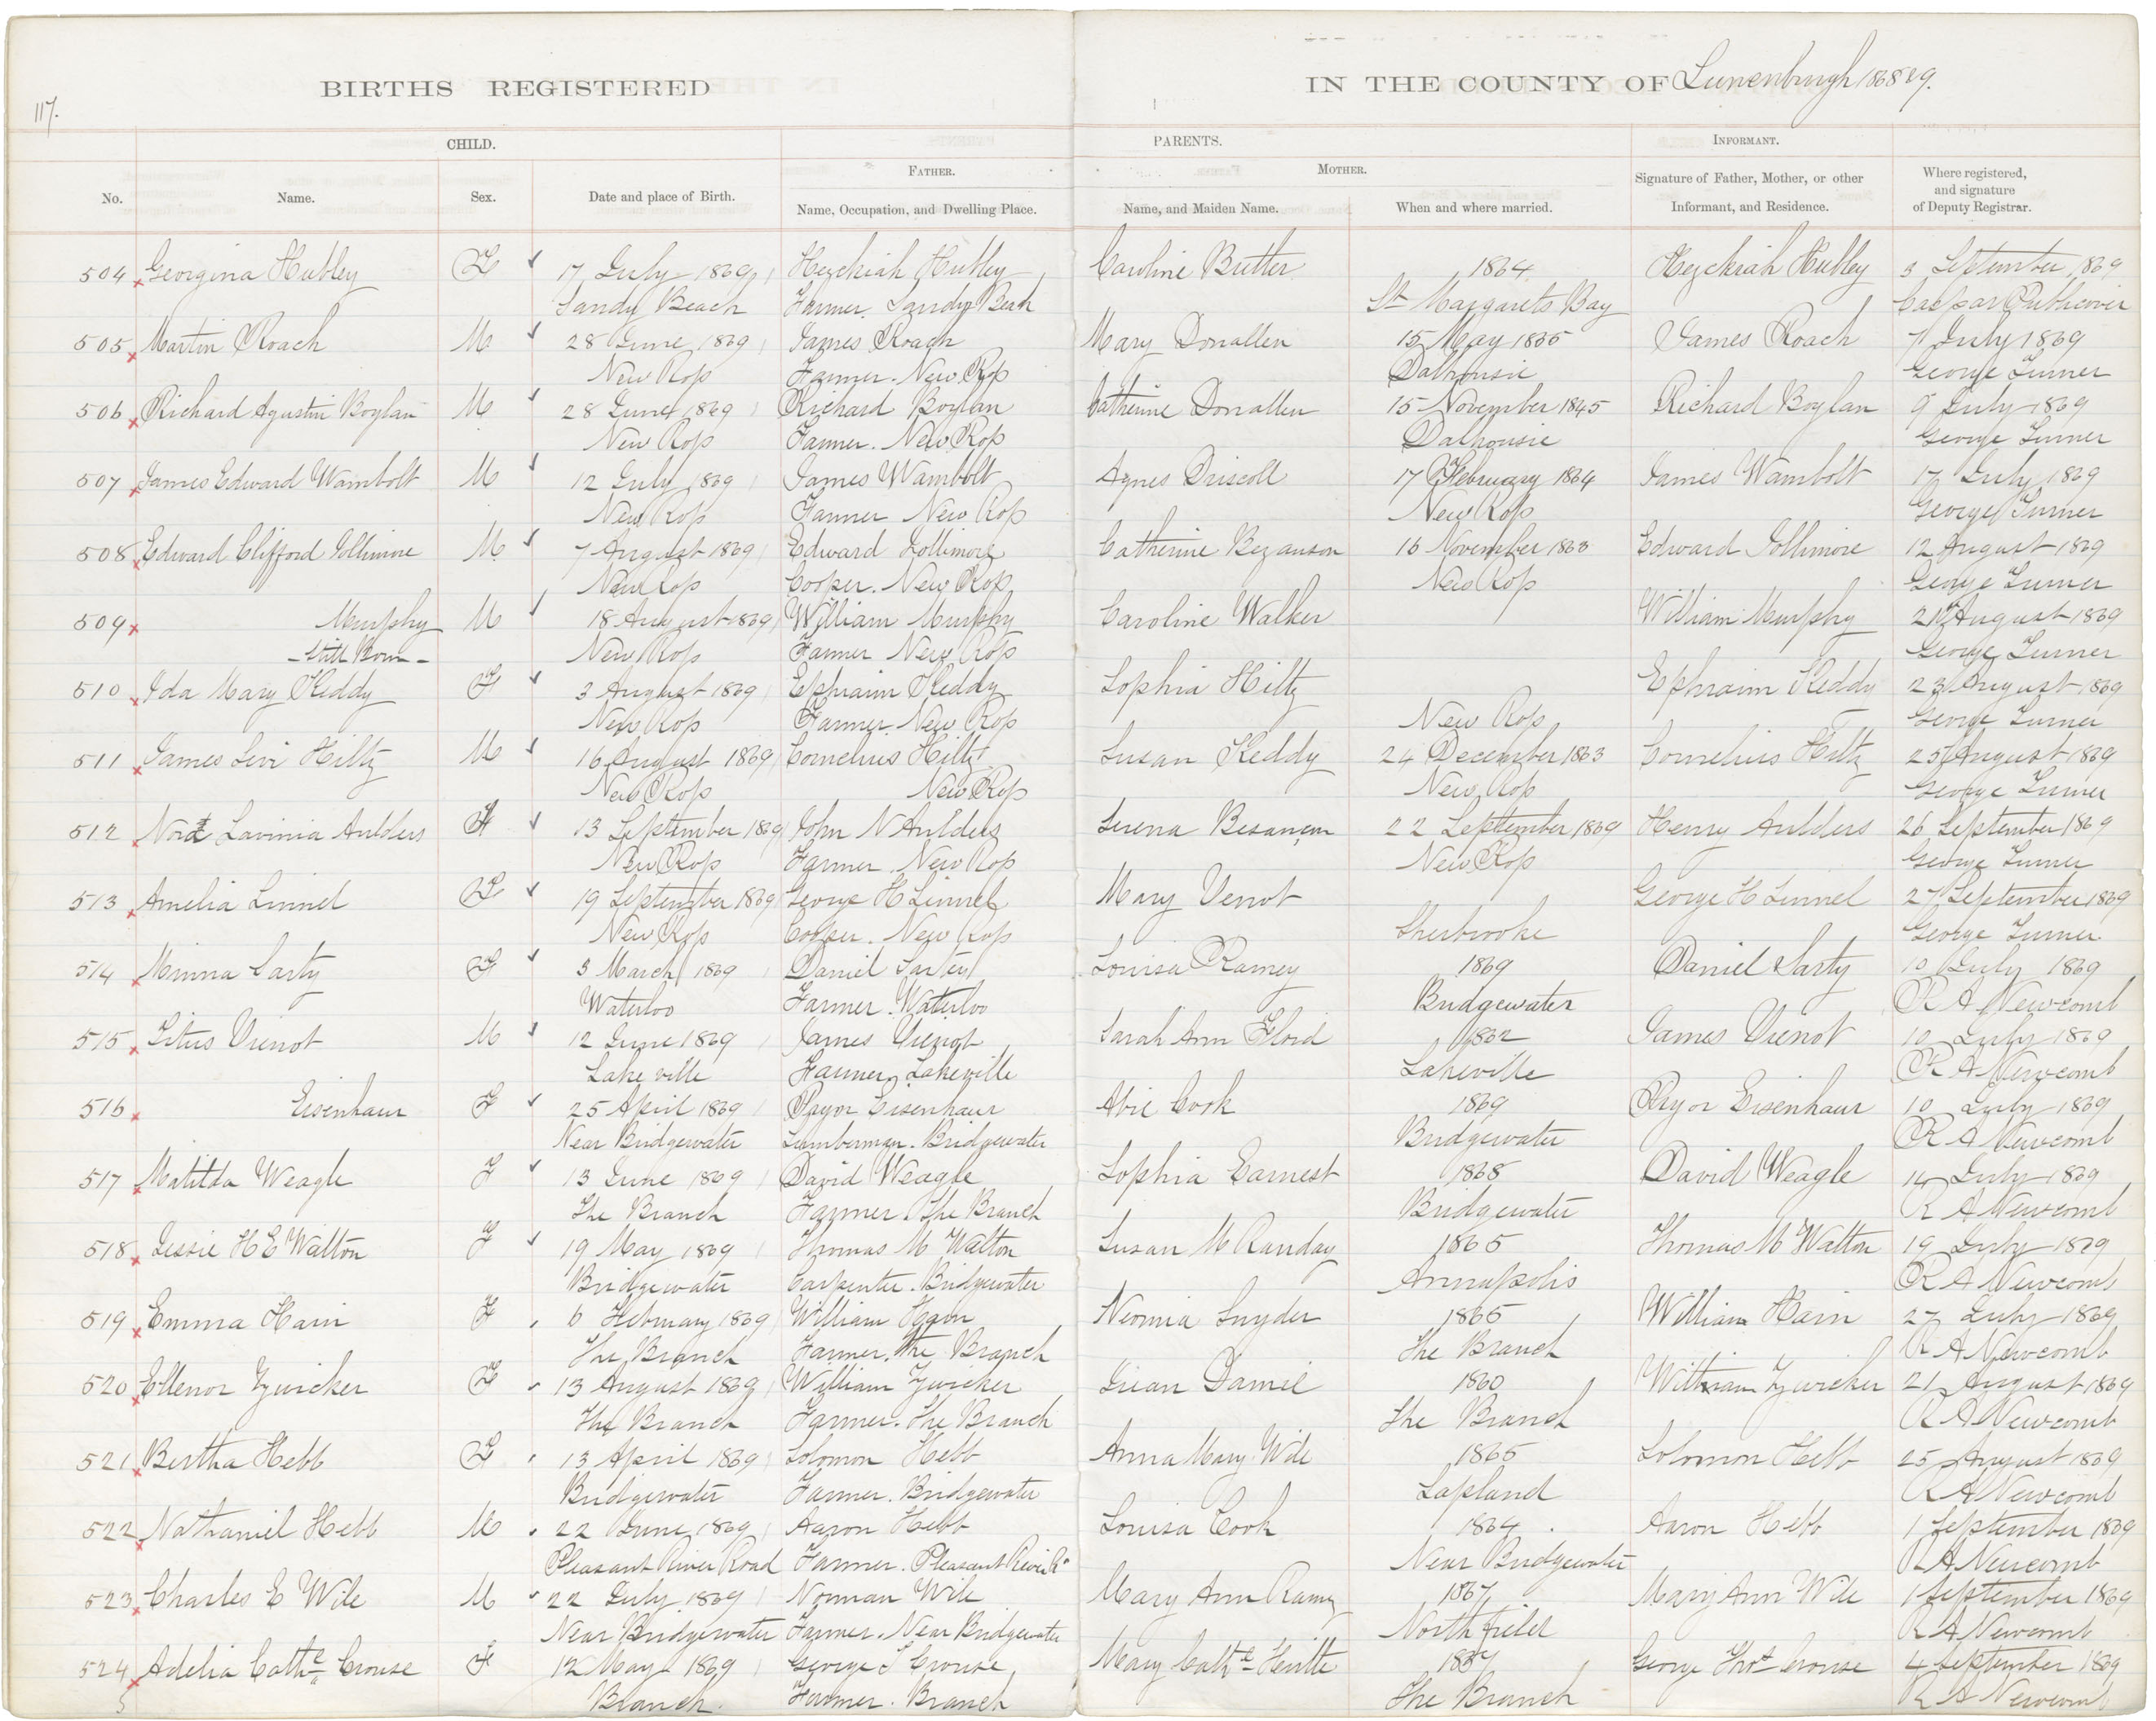 117.
BIRTHS REGISTERED IN THE COUNTY OF Lunenburgh 1868 & 9.
CHILD. PARENTS. INFORMANT.
FATHER. MOTHER.
No. Name. Sex. Date and place of Birth. Name, Occupation, and Dwelling Place. Name, and Maiden Name. When and where married. Signature of Father, Mother, or other Informant, and Residence. Where registered, and signature of Deputy Registrar.
504 Georgina Hubley F 17 July 1869 Hezekiah Hubley Caroline Butler 1864 Hezekiah Hubley 3 September 1869
Sandy Beach Farmer. Sandy Beach St Margarets Bay Caspar Publicover
505 Martin Roach M 28 June 1869 James Roach Mary Donallen 15 May 1855 James Roach 7 July 1869
New Ross Farmer. New Ross Dalhousie George Turner
506 Richard Agustin Boylan M 28 June 1869 Richard Boylan Catherine Donallen 15 November 1845 Richard Boylan 9 July 1869
New Ross Farmer. New Ross Dalhousie George Turner
507 James Edward Wambolt M 12 July 1869 James Wambolt Agnes Driscoll 17 February 1864 James Wambolt 17 July 1869
New Ross Farmer New Ross New Ross George Turner
508 Edward Clifford Jollimore M 7 August 1869 Edward Jollimore Catherine Bezanson 16 November 1868 Edward Jollimore 12 August 1869
New Ross Cooper. New Ross New Ross George Turner
509 Murphy M 18 August 1869 William Murphy Caroline Walker William Murphy 21st August 1869
- Still Born - New Ross Farmer New Ross George Turner
510 Ida Mary Keddy F 3 August 1869 Ephraim Keddy Sophia Hiltz Ephraim Keddy 23 August 1869
New Ross Farmer. New Ross New Ross George Turner
511 James Levi Hiltz M 16 August 1869 Cornelius Hiltz Susan Keddy 24 December 1863 Cornelius Hiltz 25 August 1869
New Ross New Ross New Ross George Turner
512 Lavinia Aulders F 13 September 1869 John N Aulders Serena Besançon 22 September 1869 Henry Aulders 26 September 1869
New Ross Farmer. New Ross New Ross George Turner
513 Amelia Linnel F 19 September 1869 George H Linnel Mary Venot George H Linnel 27 September 1869
New Ross Cooper. New Ross Sherbrooke George Turner
514 Minna Sarty F 3 March 1869 Daniel Sarty Louisa Ramey 1869 Daniel Sarty 10 July 1869
Waterloo Farmer. Waterloo Bridgewater R A Newcomb
515 Titus Vienot M 12 June 1869 James Vienot Sarah Ann Floid 1862 James Vienot 10 July 1869
Lakeville Farmer, Lakeville Lakeville R A Newcomb
516 Eisenhaur F 25 April 1869 Pryor Eisenhaur Abie Cook 1869 Pryor Eisenhaur 10 July 1869
Near Bridgewater Lumberman. Bridgewater Bridgewater R A Newcomb
517 Matilda Weagle F 13 June 1869 David Weagle Sophia Earnest 1868 David Weagle 14 July 1869
The Branch Farmer. The Branch Bridgewater R A Newcomb
518 Jessie H E Walton F 19 May 1869 Thomas M Walton Susan M Randay 1865 Thomas M Walton 19 July 1869
Bridgewater Carpenter. Bridgewater Annapolis R A Newcomb
519 Emma Hain F 6 February 1869 William Haon Neomia Snyder 1865 William Hain 27 July 1869
The Branch Farmer. The Branch The Branch R A Newcomb
520 Ellenor Zwicker F 13 August 1869 William Zwicker Daniel 1860 William Zwicker 21 August 1869
The Branch Farmer. The Branch The Branch R A Newcomb
521 Bertha Hebb F 13 April 1869 Solomon Hebb Anna Mary Wile 1865 Solomon Hebb 25 August 1869
Bridgewater Farmer. Bridgewater Lapland R A Newcomb
522 Nathaniel Hebb M 22 June 1869 Aaron Hebb Louisa Cook 1864. Aaron Hebb 1 September 1869
Pleasant River Road Farmer. Pleasant River Rd Near Bridgewater R A Newcomb
523 Charles E Wile M 22 July 1869 Norman Wile Mary Ann Ramey 1867 Mary Ann Wile 1 September 1869
Near Bridgewater Farmer. Near Bridgewater Northfield R A Newcomb
524 Adelia Cathe Crouse F 12 May 1869 George T Crouse Mary Cathe 1867 George Thos Crouse 4 September 1869
5 Branch. Farmer. Branch The Branch R A Newcomb